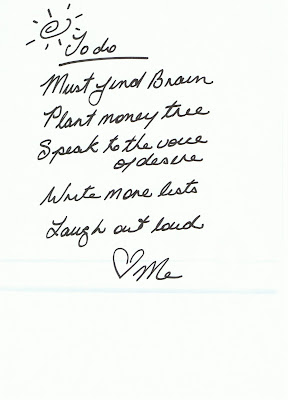 To do
Must find Brain
Plant money tree
Speak to the voice
of desire
Write more lists
Laugh out loud
♡ Me